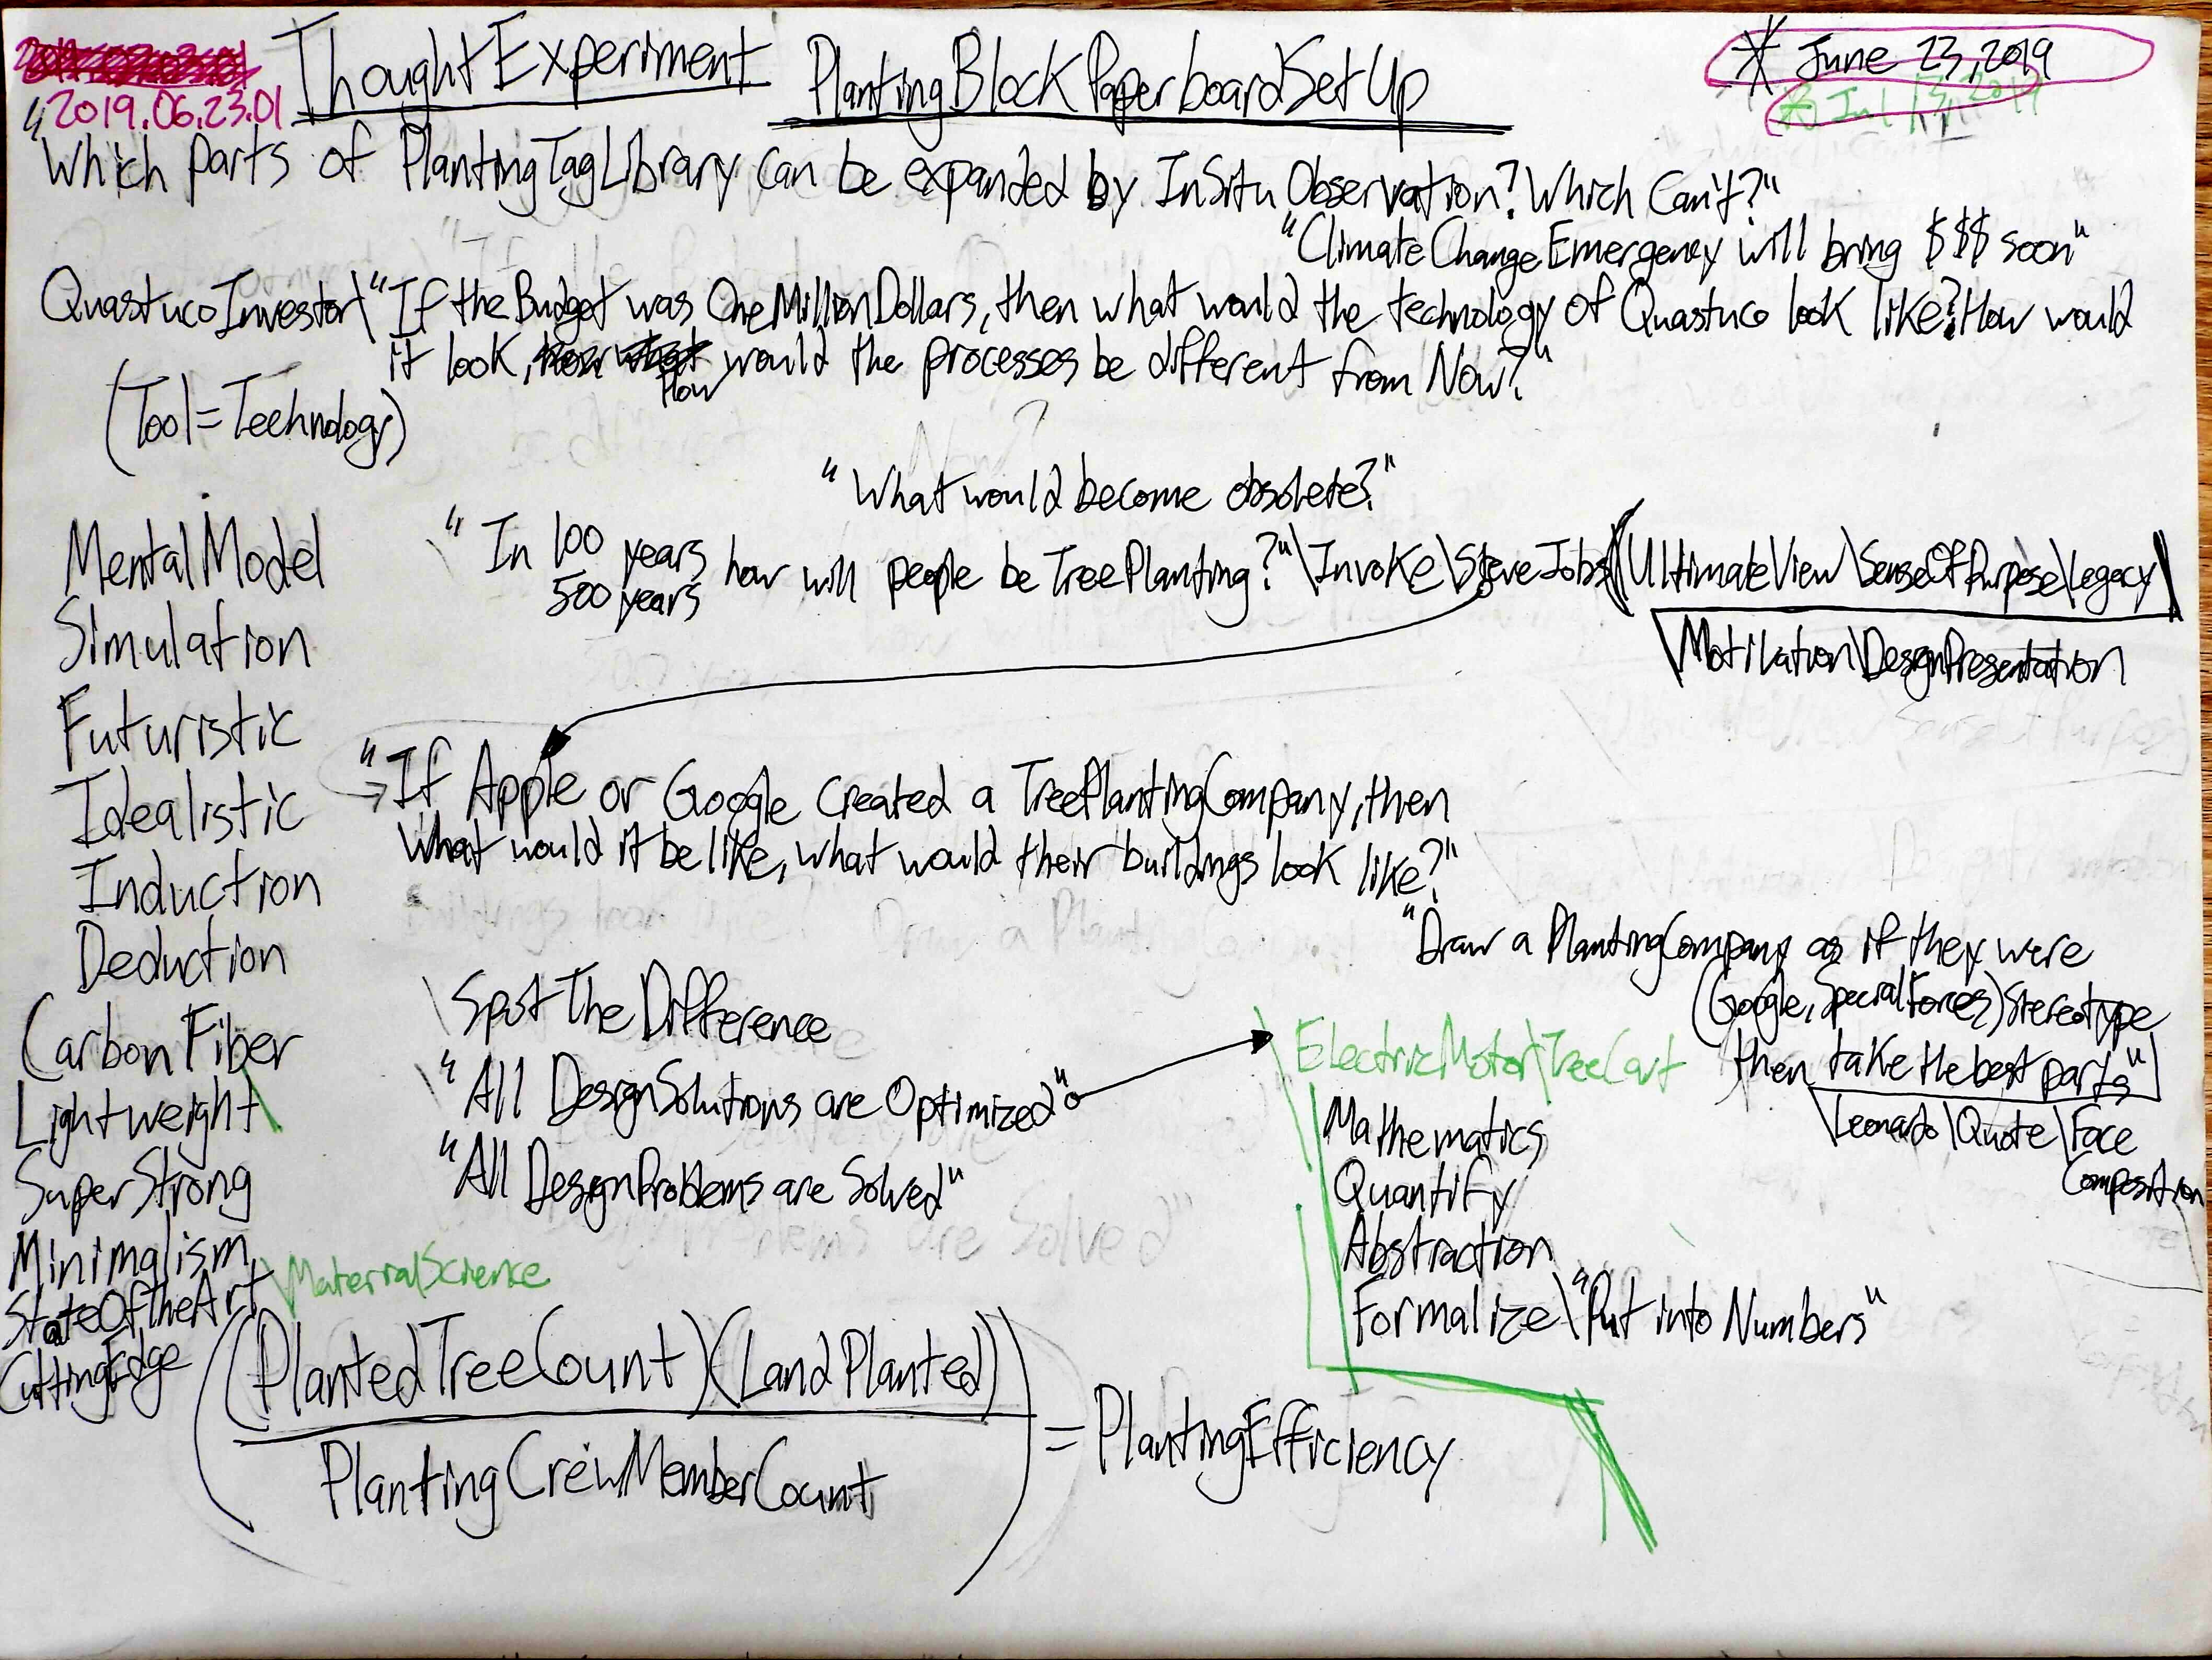 ThoughtExperiment PlantingBlockPaperboardSetUp
* June 23, 2019
2019.06.23.01
"Which parts of PlantingTagLibrary can be expanded by InSitu Observation? Which Can't?"
"ClimateChangeEmergency will bring $$$ soon"
QuastucoInvestor\"If the Budget was OneMillionDollars, then what would the technology of Quastuco look like? How would
it look, How would the processes be different from Now?"
(Tool=Technology)
"What would become obsolete?"
\"In 100 years
500 years how will people be TreePlanting?"\Invoke\SteveJobs\(UltimateView\SenseOfPurpose\Legacy)
\Motivation\DesignPresentation
MentalModel
Simulation
Futuristic
Idealistic
Induction
Deduction
CarbonFiber
Lightweight
SuperStrong
Minimalism
StateOfTheArt
CuttingEdge
\MaterialScience
"If Apple or Google created a TreePlantingCompany, then
What would it be like, what would their buildings look like?"
"Draw a PlantingCompany as if they were
(Google, SpecialForces) Stereotype
then take the best parts"
\Leonardo\Quote\Face
Composition
\SpotTheDifference
\"All DesignSolutions are Optimized"
"All DesignProblems are Solved"
\ElectricMotor\TreeCart
Mathematics
Quantify
Abstraction
Formalize\"Put into Numbers"
((PlantedTreeCount)(LandPlanted)
PlantingCrewMemberCount) = PlantingEfficiency